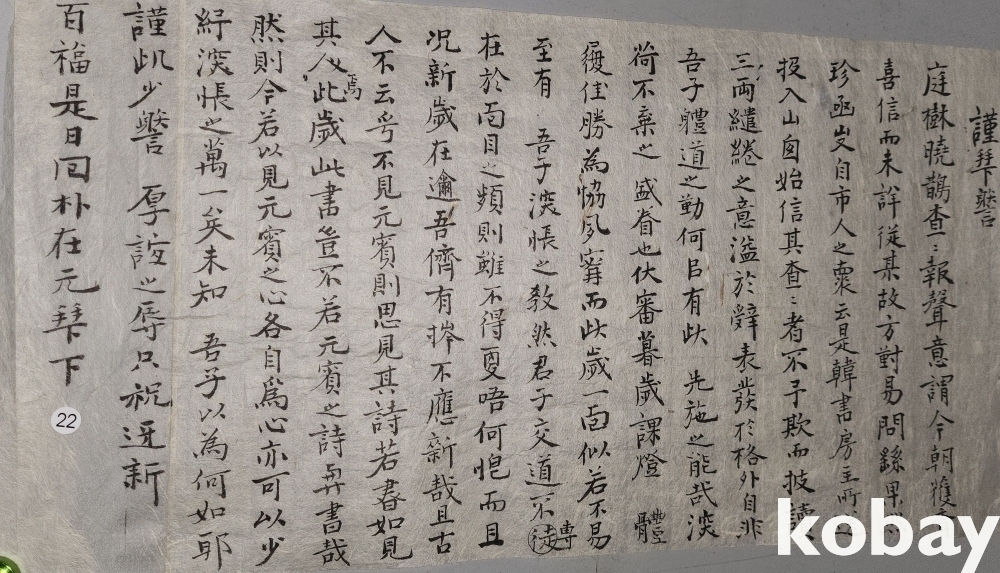 謹拜謦
庭樹曉鵲查〻報聲意謂今朝獲
喜信而未詳從某故方對易問繇果
珍函忽自市人之褁云是韓書房主所
投入山囱始信其查〻者不予欺而披讀
三両繾綣之意溢於辭表發於格外自非
吾子軆道之勤何㠯有此 先施之能哉深
荷不棄之 盛眷也伏審暮歲課燈 軆
履佳勝為協夙窹而此歲一面似若不易
至有 吾子深悵之教然君子交道不徒專
在於面目之頻則雖不得更唔何悒而且
况新歲在邇吾儕有捽不應新哉且古
人不云乎不見元賓則思見其詩若書如見
其人此歲此書豈不若元賓之詩與書哉
焉
然則今若以見元賓之心各自爲心亦可以少
紓深悵之萬一矣未知 吾子以為何如耶
謹此少謦 厚訪之辱只祝迓新
百福是日回朴在元拜下
22
kobay